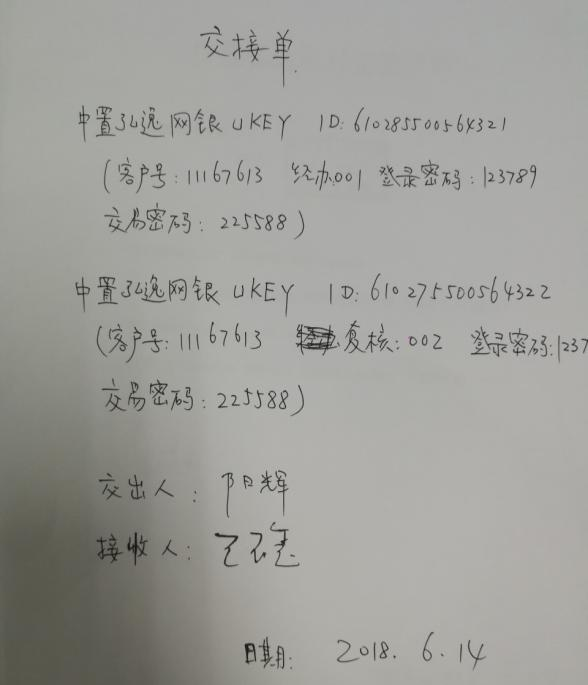 交接单
中置弘逸网银UKEY ID:610285500564321
(客户号:11167613 经办001 登录密码:123789
交易密码:225588)
中置弘逸网银UKEY ID:610275500564322
(客户号:11167613 复核:002 登录密码:1237
交易密码:225588)
交出人:阳辉
接收人:王
日期: 2018.6.14